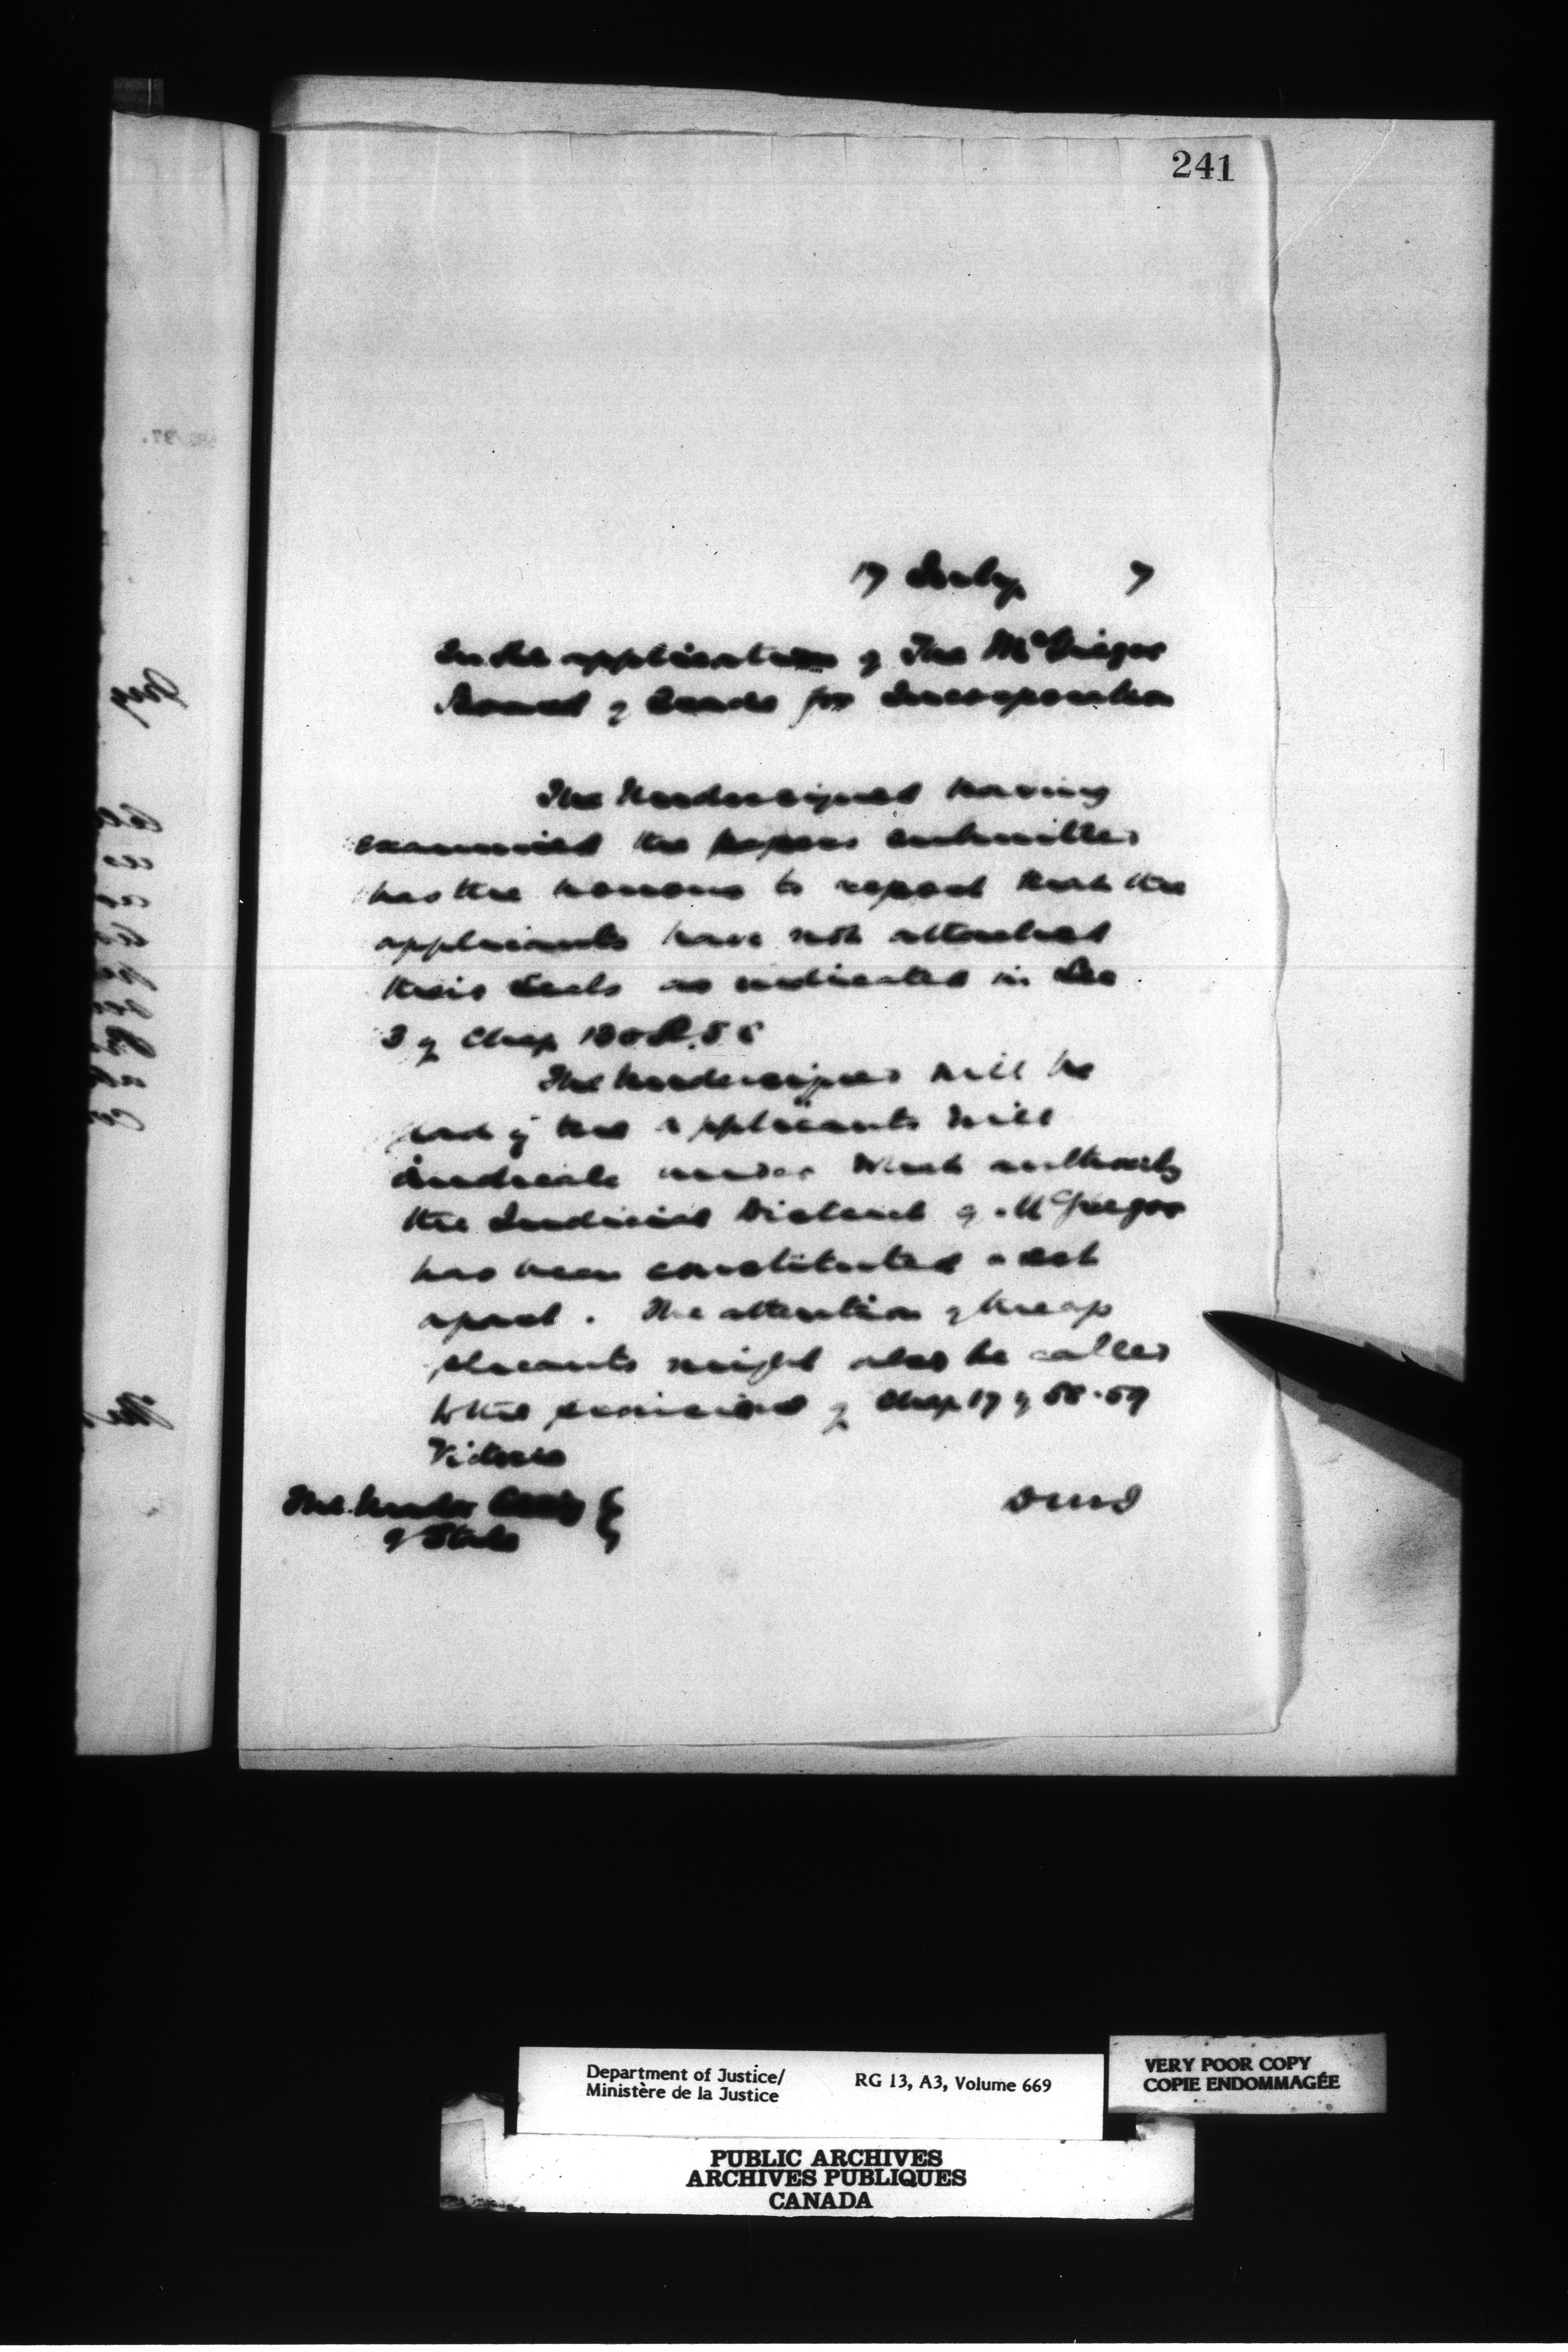 241
17 July 7
In the application of The McGregor
Board of Trade for Incorporation
The Undersigned having
examined the papers submitted
has the honour to report that the
applicants have not attached
their seals as indicated in Sec
3 of Chap 130 R.S C
The Undersigned will be
glad if the applicants will
indicate under what authority
the Judicial District of McGregor
has been constituted & set
apart. The attention of the ap
plicants might also be called
to the provisions of Chap 17 of 58-59
Victoria
The Under Secy
of State
Department of Justice/
Ministère de la Justice
RG 13, A3, Volume 669
VERY POOR COPY
COPIE ENDOMMAGÉE
PUBLIC ARCHIVES
ARCHIVES PUBLIQUES
CANADA